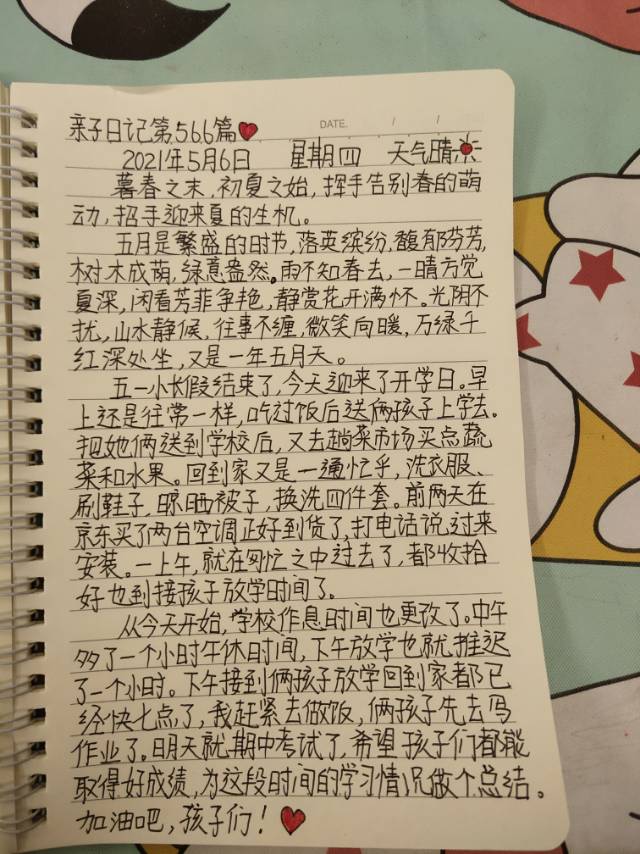 DATE. / /
亲子日记第566篇
2021年5月6日 星期四 天气晴
暮春之末,初夏之始,挥手告别春的萌
动,招手迎来夏的生机。
五月是繁盛的时节,落英缤纷,馥郁芬芳,
树木成荫,绿意盎然。雨不知春去,一晴方觉
夏深,闲看芳菲争艳,静赏花开满怀。光阴不
扰,山水静候,往事不缠,微笑向暖,万绿千
红深处坐,又是一年五月天。
五一小长假结束了,今天迎来了开学日。早
上还是往常一样,吃过饭后送俩孩子上学去。
把她俩送到学校后,又去趟菜市场买点蔬
菜和水果。回到家又是一通忙乎,洗衣服、
刷鞋子,晾晒被子,换洗四件套。前两天在
京东买了两台空调正好到货了,打电话说过来
安装。一上午,就在匆忙之中过去了,都收拾
好也到接孩子放学时间了。
从今天开始,学校作息时间也更改了。中午
多了一个小时午休时间,下午放学也就推迟
了一个小时。下午接到俩孩子放学回到家都已
经快七点了,我赶紧去做饭,俩孩子先去写
作业了。明天就期中考试了,希望孩子们都能
取得好成绩,为这段时间的学习情况做个总结。
加油吧,孩子们!